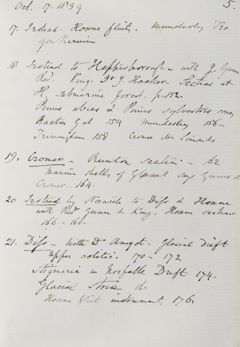 Oct. 17. 1859 5.
17. Instead. Hoxne flint. Mundesley
18 Instead to Happisborough – with J. Gunn
Revd King. Section at
H. submarine forest. p. 152.
Pinus abies & Pinus sylvestris
Bacton Gap 154 Mundesley 156
Trimingham 158 Cromer
19. Cromer. Runton Section. – 62
marine shells of Glacial say Gunn &
Cromer – 164.
20 Instead by Norwich to Diss & Hoxne
with Revd Gunn & King. Hoxne section
165 – 168.
21. Diss – with Dr Amyot. – Glacial Drift
Upper oolitic. 170 – 172
Stigmaria in Norfolk Drift 174
Glacial do.
Hoxne flint instrument, 176.